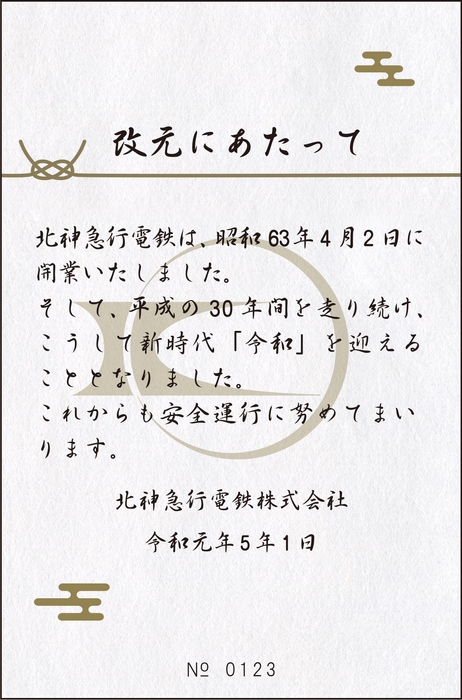 改元にあたって
北神急行電鉄は、昭和63年4月2日に
開業いたしました。
そして、平成の30年間を走り続け、
こうして新時代「令和」を迎える
こととなりました。
これからも安全運行に努めてまい
ります。
北神急行電鉄株式会社
令和元年5年1日
№ 0123